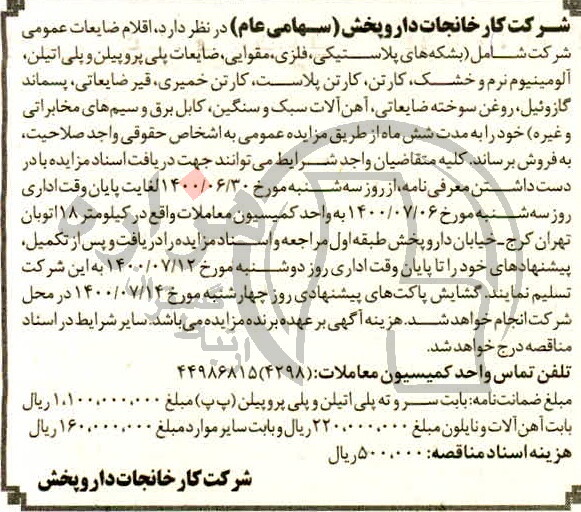 شرکت کارخانجات داروپخش (سهامی عام) در نظر دارد، اقلام ضایعات عمومی
شرکت شامل (بشکه‌های پلاستیکی، فلزی، مقوایی، ضایعات پلی پروپیلن و پلی اتیلن،
آلومینیوم نرم و خشک، کارتن، کارتن پلاست، کارتن خمیری، قیر ضایعاتی، پسماند
گازوئیل، روغن سوخته ضایعاتی، آهن آلات سبک و سنگین، کابل برق و سیم‌های مخابراتی
و غیره) خود را به مدت شش ماه از طریق مزایده عمومی به اشخاص حقوقی واجد صلاحیت،
به فروش برساند. کلیه متقاضیان واجد شرایط می‌توانند جهت دریافت اسناد مزایده با در
دست داشتن معرفی نامه، از روز سه شنبه مورخ ۱۴۰۰/۰۶/۳۰ لغایت پایان وقت اداری
روز سه شنبه مورخ ۱۴۰۰/۰۷/۰۶ به واحد کمیسیون معاملات واقع در کیلومتر ۱۸ اتوبان
تهران کرج - خیابان داروپخش طبقه اول مراجعه و اسناد مزایده را دریافت و پس از تکمیل،
پیشنهادهای خود را تا پایان وقت اداری روز دوشنبه مورخ ۱۴۰۰/۰۷/۱۲ به این شرکت
تسلیم نمایند. گشایش پاکت‌های پیشنهادی روز چهارشنبه مورخ ۱۴۰۰/۰۷/۱۴ در محل
شرکت انجام خواهد شد. هزینه آگهی بر عهده برنده مزایده می‌باشد. سایر شرایط در اسناد
مناقصه درج خواهد شد.
تلفن تماس واحد کمیسیون معاملات: (۴۲۹۸) ۴۴۹۸۶۸۱۵
مبلغ ضمانت نامه: بابت سر و ته پلی اتیلن و پلی پروپیلن (پ پ) مبلغ ۱,۱۰۰,۰۰۰,۰۰۰ ریال
بابت آهن آلات و نایلون مبلغ ۲۲۰,۰۰۰,۰۰۰ ریال و بابت سایر موارد مبلغ ۱۶۰,۰۰۰,۰۰۰ ریال
هزینه اسناد مناقصه: ۵۰۰,۰۰۰ ریال
شرکت کارخانجات داروپخش